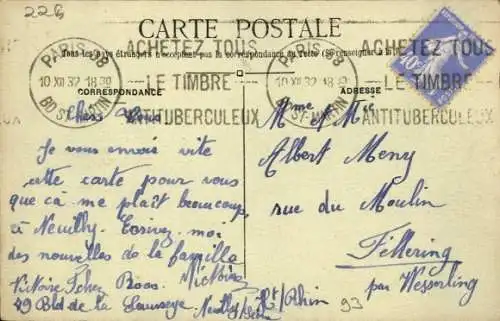 226
CARTE POSTALE
Tous les pays étrangers n'acceptent pas la correspondance au recto (Se renseigner à la
PARIS 98
10 XII 32 18 30
BD ST-MARTIN
ACHETEZ TOUS
LE TIMBRE
ANTITUBERCULEUX
PARIS 98
10 XII 32 18 30
BD ST-MARTIN
ACHETEZ TOUS
LE TIMBRE
ANTITUBERCULEUX
40c
CORRESPONDANCE
ADRESSE
Chers Vous
Je vous envoie vite
cette carte pour vous
que cà me plaît beaucoup
à Neuilly. Ecrivez-moi
des nouvelles de la familla
Victoire
Victoire chez Boos
49 Bld de la Saussaye. Neuilly/Seine
Mme et Mr
Albert Meny
rue du Moulin
Fellering
par Wesserling
Ht/Rhin
93